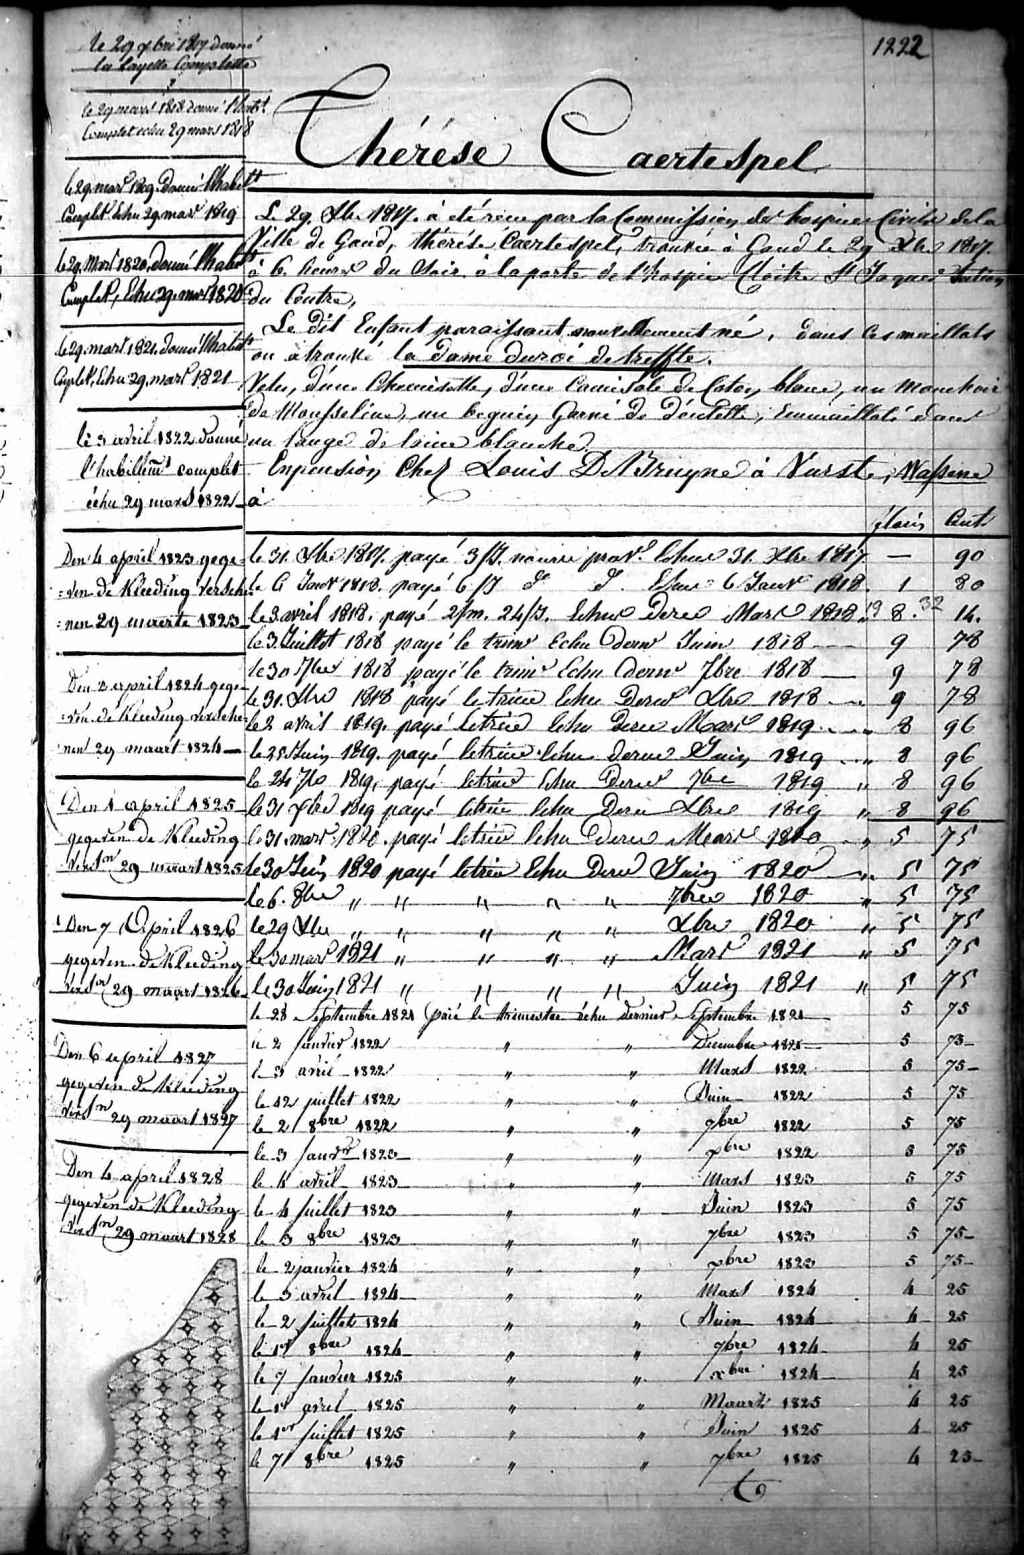 1222
Thérése Caertespel
le 29 xbre 1817 donné
la layette Complette
le 29 mars 1818 donné l'habt
Complet echu 29 mars 1818
le 29 mars 1819. donné l'habilt
Complet Echu 29 mars 1819
le 29 Mars 1820, donné l'habilt
Complet, Echu 29 mars 1820
le 29. mars 1821. donné l'habilt
Cuplet, Echu 29. mars 1821
le 3 avril 1822 donné
l'habillemt complet
échu 29 mars 1822
Den 4 april 1823 gege-
=ven de kleeding versche-
=nen 29 maarte 1823
Den 2 april 1824 gege-
=ven de kleeding versche-
nen 29 maart 1824
Den 1 april 1825
gegeven de kleeding
versn 29 maart 1825
Den 7 April 1826
gegeven de kleeding
versn 29 maart 1826
Den 6 april 1827
gegeven de kleeding
versn 29 maart 1827
Den 4 april 1828
gegeven de kleeding
versn 29 maart 1828
Le 29 Xbre 1817. à été recue par la Commission des hospices Civils de la
Ville de Gand, thérése Caertespel, trouvée à Gand le 29 Xbre 1817.
à 6 heures du Soir à la porte de l'hospice Cloitre St Jaques Section
du Centre,
Le dit Enfant paraissant nouvellement né, dans ces maillots
on a trouvé la dame du roi de treffle.
Vetu, d'une Chemisette, d'une Camisole de Coton blanc, un mouchoir
de Mousseline, un beguin Garni de dentelle, Emmailloté dans
un lange de laine blanche.
Enpension Chez Louis De Bruyne à Vurste, Wassene
à
florins Cent
le 31. Xbre 1817. payé 3/S. nourie prov.e Echue 31. Xbre 1817 — 90
le 6 Janvr 1818. payé 6/S do do. Echue 6 Janvr 1818. 1 80
le 3 avril 1818. payé 2/m. 24/S. Echue Derer Mars 1818 19 8. 32 14.
le 3. Juillet 1818 payé le trimr Echu derner Juin 1818 9 78
le 30 7bre 1818 payé le trimr Echu derner 7bre 1818 9 78
le 31. Xbre 1818 payé le trimr Echu Derner Xbre 1818 9 78
le 2 avril 1819. payé letrim Echu derer Mars 1819 8 96
le 25 Juin 1819. payé letrim Echu derner Juin 1819 " 8 96
le 24 7bre 1819, payé letrim Echu Derner 7bre 1819 " 8 96
le 31 xbre 1819 payé letrim Echu Derer Xbre 1819 " 8 96
le 31. mars 1820. payé letrim Echu Derer Mars 1820 " 5 75
le 30 Juin 1820 payé letrim Echu Derer Juin 1820 " 5 75
le 6. 8bre " " " " " 7bre 1820 " 5 75
le 29 Xbre " " " " " Xbre 1820 " 5 75
le 30 mars 1821 " " " " Mars 1821 " 5 75
le 30 Juin 1821 " " " " Juin 1821 " 5 75
le 28 Septembre 1821 paié le trimestre échu dernier Septembre 1821 5 75
le 2 janvier 1822 " " Decembre 1821 5 75
le 3 avril 1822 " " Mars 1822 5 75
le 12 juillet 1822 " " Juin 1822 5 75
le 2 8bre 1822 " " 7bre 1822 5 75
le 3 janvr 1823 " " xbre 1822 5 75
le 1 avril 1823 " " Mars 1823 5 75
le 4 juillet 1823 " " Juin 1823 5 75
le 3 8bre 1823 " " 7bre 1823 5 75
le 2 janvier 1824 " " xbre 1823 5 75
le 5 avril 1824 " " Mars 1824 4 25
le 2 juillet 1824 " " Juin 1824 4 25
le 1er 8bre 1824 " " 7bre 1824 4 25
le 7 janvier 1825 " " xbre 1824 4 25
le 1r avril 1825 " " Maart 1825 4 25
le 1er juillet 1825 " " Juin 1825 4 25
le 7 8bre 1825 " " 7bre 1825 4 25